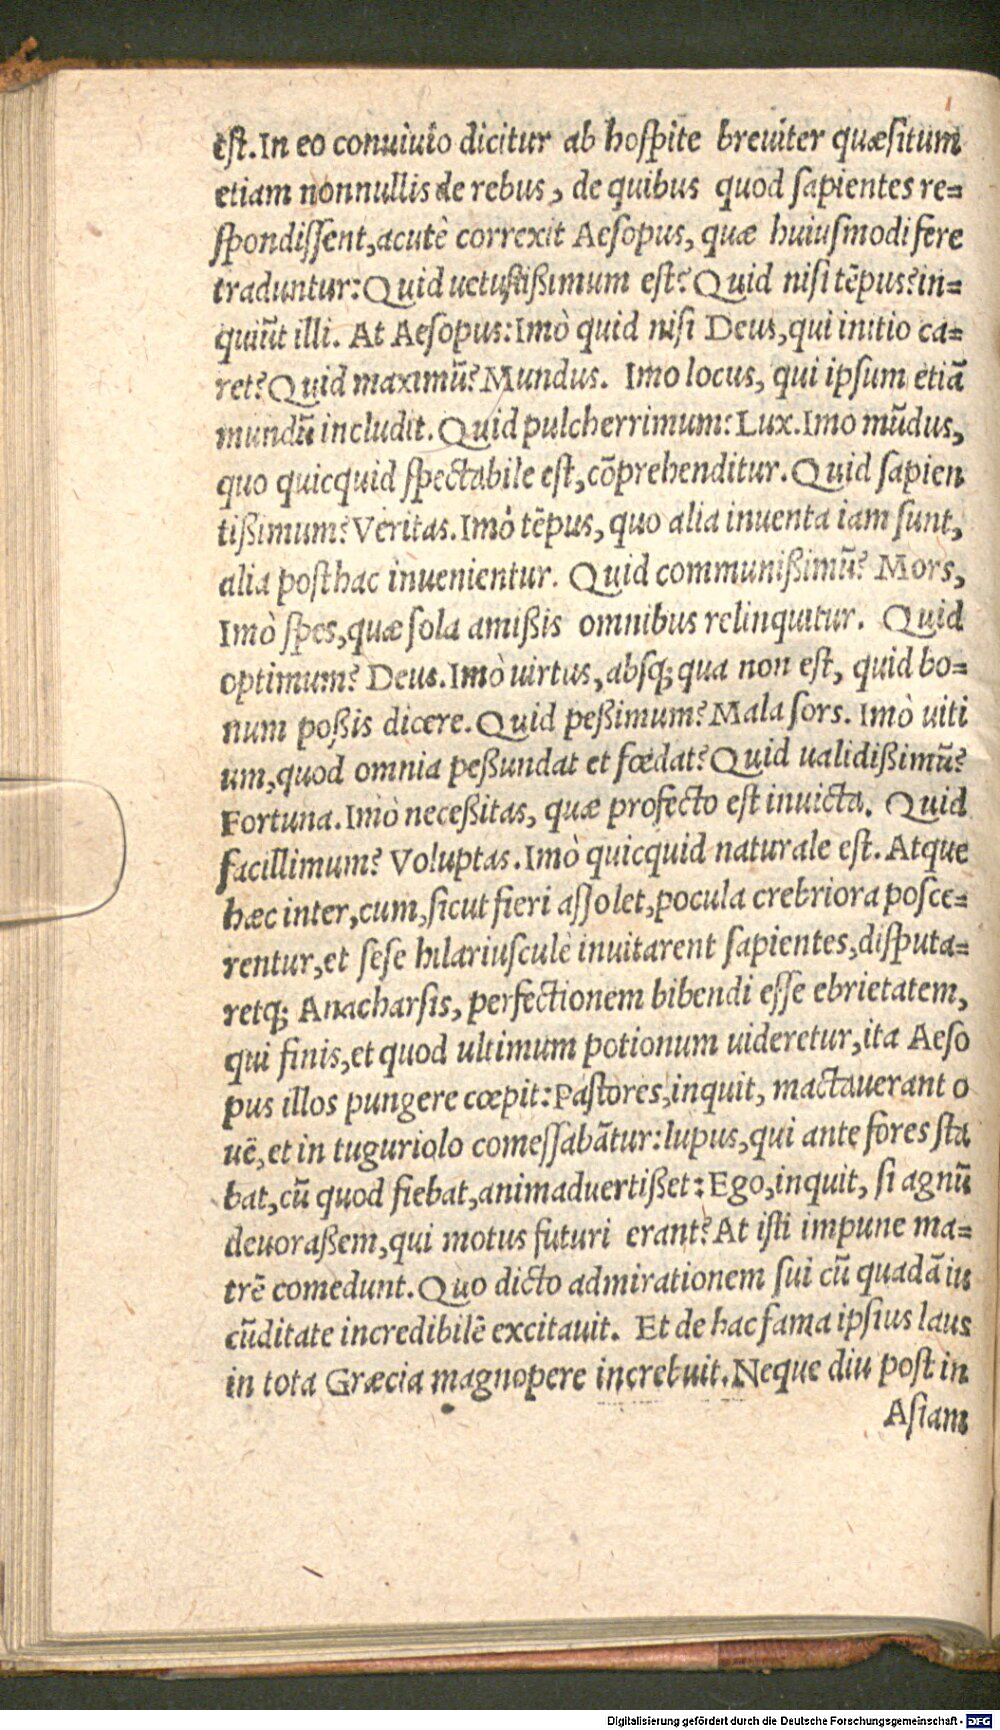 eſt. In eo conuiuio dicitur ab hoſpite breuiter quæſitum
etiam nonnullis de rebus, de quibus quod ſapientes re=
ſpondiſſent, acutè correxit Aeſopus, quæ huiuſmodi fere
traduntur: Quid uetuſtißimum eſt? Quid niſi tēpus? in=
quiūt illi. At Aeſopus: Imò quid niſi Deus, qui initio ca=
ret? Quid maximū? Mundus. Imo locus, qui ipſum etiā
mundū includit. Quid pulcherrimum: Lux. Imo mūdus,
quo quicquid ſpectabile eſt, cōprehenditur. Quid ſapien
tißimum? Veritas. Imò tēpus, quo alia inuenta iam ſunt,
alia poſthac inuenientur. Quid communißimū? Mors,
Imò ſpes, quæ ſola amißis omnibus relinquitur. Quid
optimum? Deus. Imò uirtus, abſq; qua non eſt, quid bo=
num poßis dicere. Quid peßimum? Mala ſors. Imò uiti
um, quod omnia peßundat et fœdat? Quid ualidißimū?
Fortuna. Imò neceßitas, quæ profecto eſt inuicta. Quid
facillimum? Voluptas. Imò quicquid naturale eſt. Atque
hæc inter, cum, ſicut fieri aſſolet, pocula crebriora poſce=
rentur, et ſeſe hilariuſculè inuitarent ſapientes, diſputa=
retq; Anacharſis, perfectionem bibendi eſſe ebrietatem,
qui finis, et quod ultimum potionum uideretur, ita Aeſo
pus illos pungere cœpit: Paſtores, inquit, mactauerant o
uē, et in tuguriolo comeſſabātur: lupus, qui ante fores ſta
bat, cū quod fiebat, animaduertißet: Ego, inquit, ſi agnū
deuoraßem, qui motus futuri erant? At iſti impune ma=
trē comedunt. Quo dicto admirationem ſui cū quadā iu
cūditate incredibilē excitauit. Et de hac fama ipſius laus
in tota Græcia magnopere increbuit. Neque diu poſt in
Aſiam
Digitalisierung gefördert durch die Deutsche Forschungsgemeinschaft - DFG